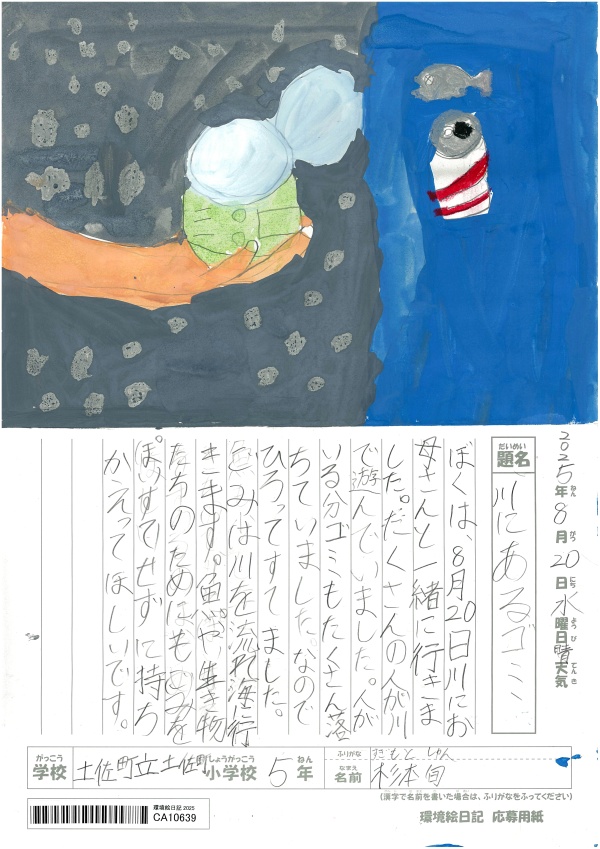 2025年8月20日水曜日晴天気
ねん
がつ
にち
ようび
てんき
だいめい
題名
川にあるゴミ
ぼくは、8月20日川にお
母さんと一緒に行きま
した。たくさんの人が川
で遊んでいました。人が
いる分ゴミもたくさん落
ちていました。なので
ひろってすてました。
ごみは川を流れ海に行
きます。魚や生き物
たちのためにもごみを
ぽすてせずに持ち
かえってほしいです。
がっこう
学校
土佐町立土佐町小学校
しょうがっこう
5年
ねん
ふりがな
すぎもと しゅん
なまえ
名前
杉本 旬
(漢字で名前を書いた場合は、ふりがなをふってください)
環境絵日記 応募用紙
環境絵日記 2025
CA10639